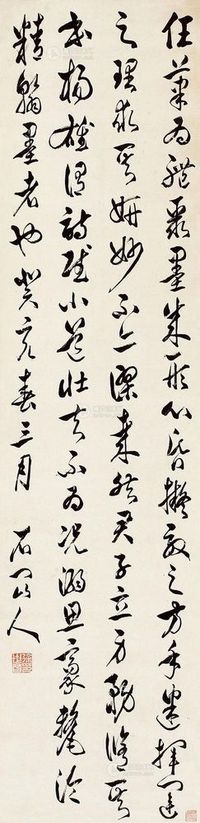 任筆為體聚墨成形心昏擬效之方手迷揮運
之理求其妍妙不亦謬哉然君子立身務修其
本楊雄謂詩賦小道壯夫不為況溺思豪氂淪
精翰墨者也癸亥春三月 石門山人